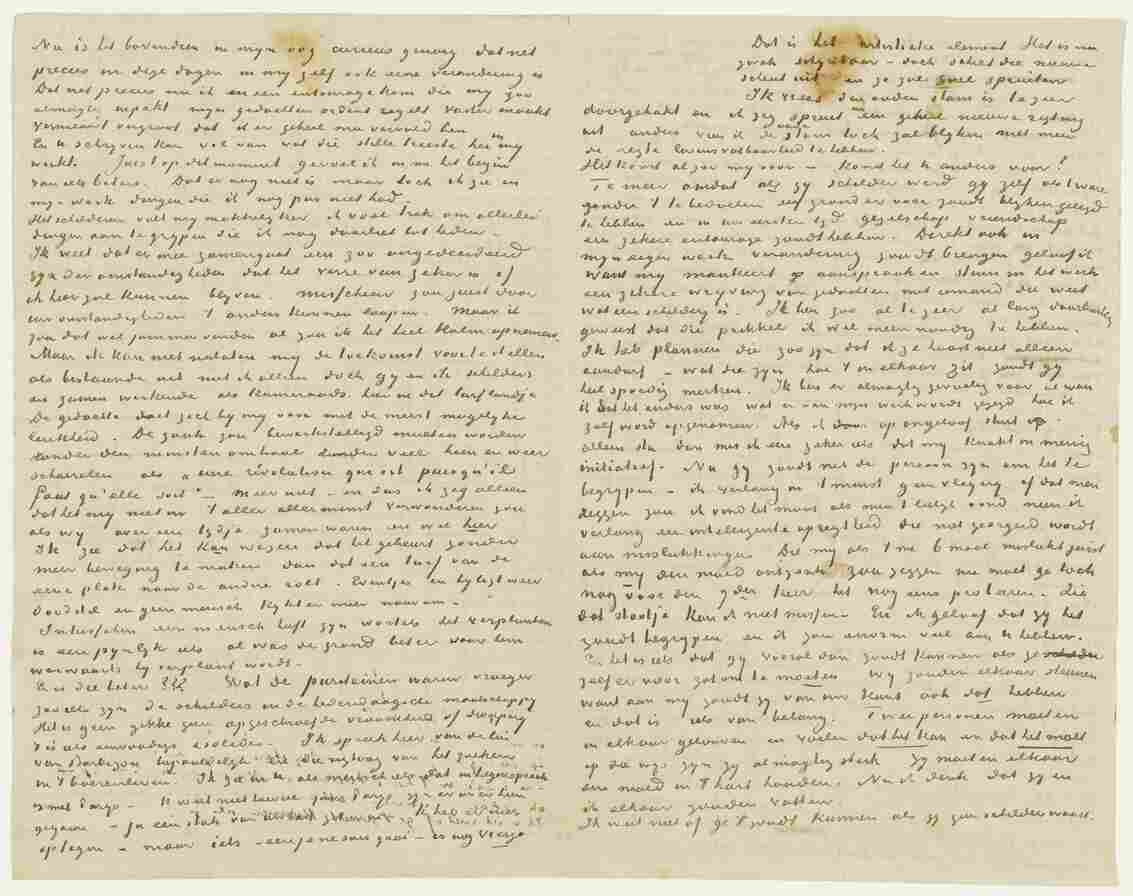 Nu is het bovendien in myn oog curieus genoeg dat net
precies in deze dagen in my zelf ook eene verandering is
Dat net precies nu ik in een entourage kom die my zoo
almagtig inpakt myn gedachten ordent regelt vaster maakt
vernieuwt vergroot dat ik er geheel mee vervuld ben
En u schryven kan vol van wat die stille heide my
werkt. Juist op dit moment gevoel ik in me het begin
van iets beters. Dat er nog niet is maar toch ik zie in
myn werk dingen die ik nog pas niet had.
Het schilderen valt my makkelyker ik voel trek om allerlei
dingen aan te grypen die ik nog daarliet tot heden.
Ik weet dat er mee samengaat een zoo ongedecideerd
zyn der omstandigheden dat het verre van zeker is of
ik hier zal kunnen blyven. Misschien zou juist door
uw omstandigheden 't anders kunnen loopen. Maar ik
zou dat wel jammer vinden al zou ik het heel kalm opnemen.
Maar ik kan niet nalaten my de toekomst voor te stellen
als bestaande uit niet ik alleen doch gy en ik schilders
en samen werkende als kameraads hier in dit turflandje
De gedachte doet zich by my voor met de meest mogelyke
leukheid. De zaak zou bewerkstelligd moeten worden
zonder den minsten omhaal zonder veel heen en weer
scharrelen als "une révolution qui est puisqu'il
faut qu'elle soit" – meer niet – en dus ik zeg alleen
dat het my niet in 't aller allerminst verwonderen zou
als wy over een tydje zamen waren en wel hier
Ik zie dat het kan wezen dat het gebeurt zonder
meer beweging te maken dan dat een turf van de
eene plek naar de andere rolt. Eventjes en hy ligt weer
doodstil en geen mensch kykt er meer naar om.
Intusschen een mensch heeft zyn wortels het verplanten
is een pynlyk iets al was de grond beter waar hem
worwaarts hy verplant wordt.
En is die beter ??? Wat de puriteinen waren vroeger
zoo iets zyn de schilders in de hedendaagsche maatschappy
Het is geen gekke geen opgeschroefde vroomheid of dweepery
't is iets eenvoudigs & solieds. Ik spreek hier van de lui
van Barbizon
in 't boerenleven. Ik zie in u als mensch iets dat in tegenspraak
is met Parys
gegaan – ja een stuk van uw hart
optegen – maar iets – een je ne sais quoi – is nog vierge
Dat is het artistieke element Het is nu
zwak schynbaar – doch schiet die nieuwe
scheut uit en ze zal snel spruiten
Ik vrees den ouden stam is te zeer
doorgehakt en ik zeg spruit in een geheel nieuwe rigting
uit anders vrees ik de stam toch zal blyken niet meer
de regte levensvatbaarheid te hebben.
Het komt al zoo my voor – komt het u anders voor?
Te meer omdat als gy schilder werd gy zelf als 't ware
zonder 't te bedoelen een grond er voor zoudt blyken gelegd
te hebben en in uw eersten tyd gezelschap vriendschap
een zekere entourage zoudt hebben. Direkt ook in
myn eigen werk verandering zoudt brengen geloof ik
want my mankeert op aanspraak en steun in het werk
een zekere wryving van gedachten met iemand die weet
wat een schildery is. Ik ben zoo al te zeer al lang daarbuiten
geweest dat die prikkel ik wel meen noodig te hebben.
Ik heb plannen die zoo zyn dat ik ze haast niet alleen
aandurf – wat die zyn hoe 't in elkaar zit zoudt gy
heel spoedig merken. Ik ben er almagtig gevoelig voor al wou
ik dat het anders was wat er van myn werk wordt gezegd hoe ik
zelf word opgenomen. Als ik op ongeloof stuit als ik
alleen sta dan mis ik een zeker iets dat my knakt in menig
initiatief. Nu gy zoudt net de persoon zyn om het te
begrypen – ik verlang in 't minst geen vleyery of dat men
zeggen zou ik vond het mooi als men 't leelyk vond neen ik
verlang een intelligente opregtheid die niet geergerd wordt
aan mislukkingen. Die my als 't me 6 maal mislukt juist
als my den moed ontzonk zou zeggen nu moet ge toch
nog voor den 7der keer het nog eens proberen. Zie
dat stootje kan ik niet missen. En ik geloof dat gy het
zoudt begrypen en ik zou enorm veel aan u hebben.
En het is iets dat gy vooral dan zoudt kunnen als ge
zelf er voor zat om te moeten Wy zouden elkaar steunen
want aan my zoudt gy van uw kant ook dat hebben
en dat is iets van belang. Twee personen moeten
in elkaar gelooven en voelen dat het kan en dat het moet
op die wys zyn zy almagtig sterk Zy moeten elkaar
den moed in 't hart houden. Nu ik denk dat gy en
ik elkaar zouden vatten.
Ik weet niet of ge 't zoudt kunnen als gy geen schilder waart.